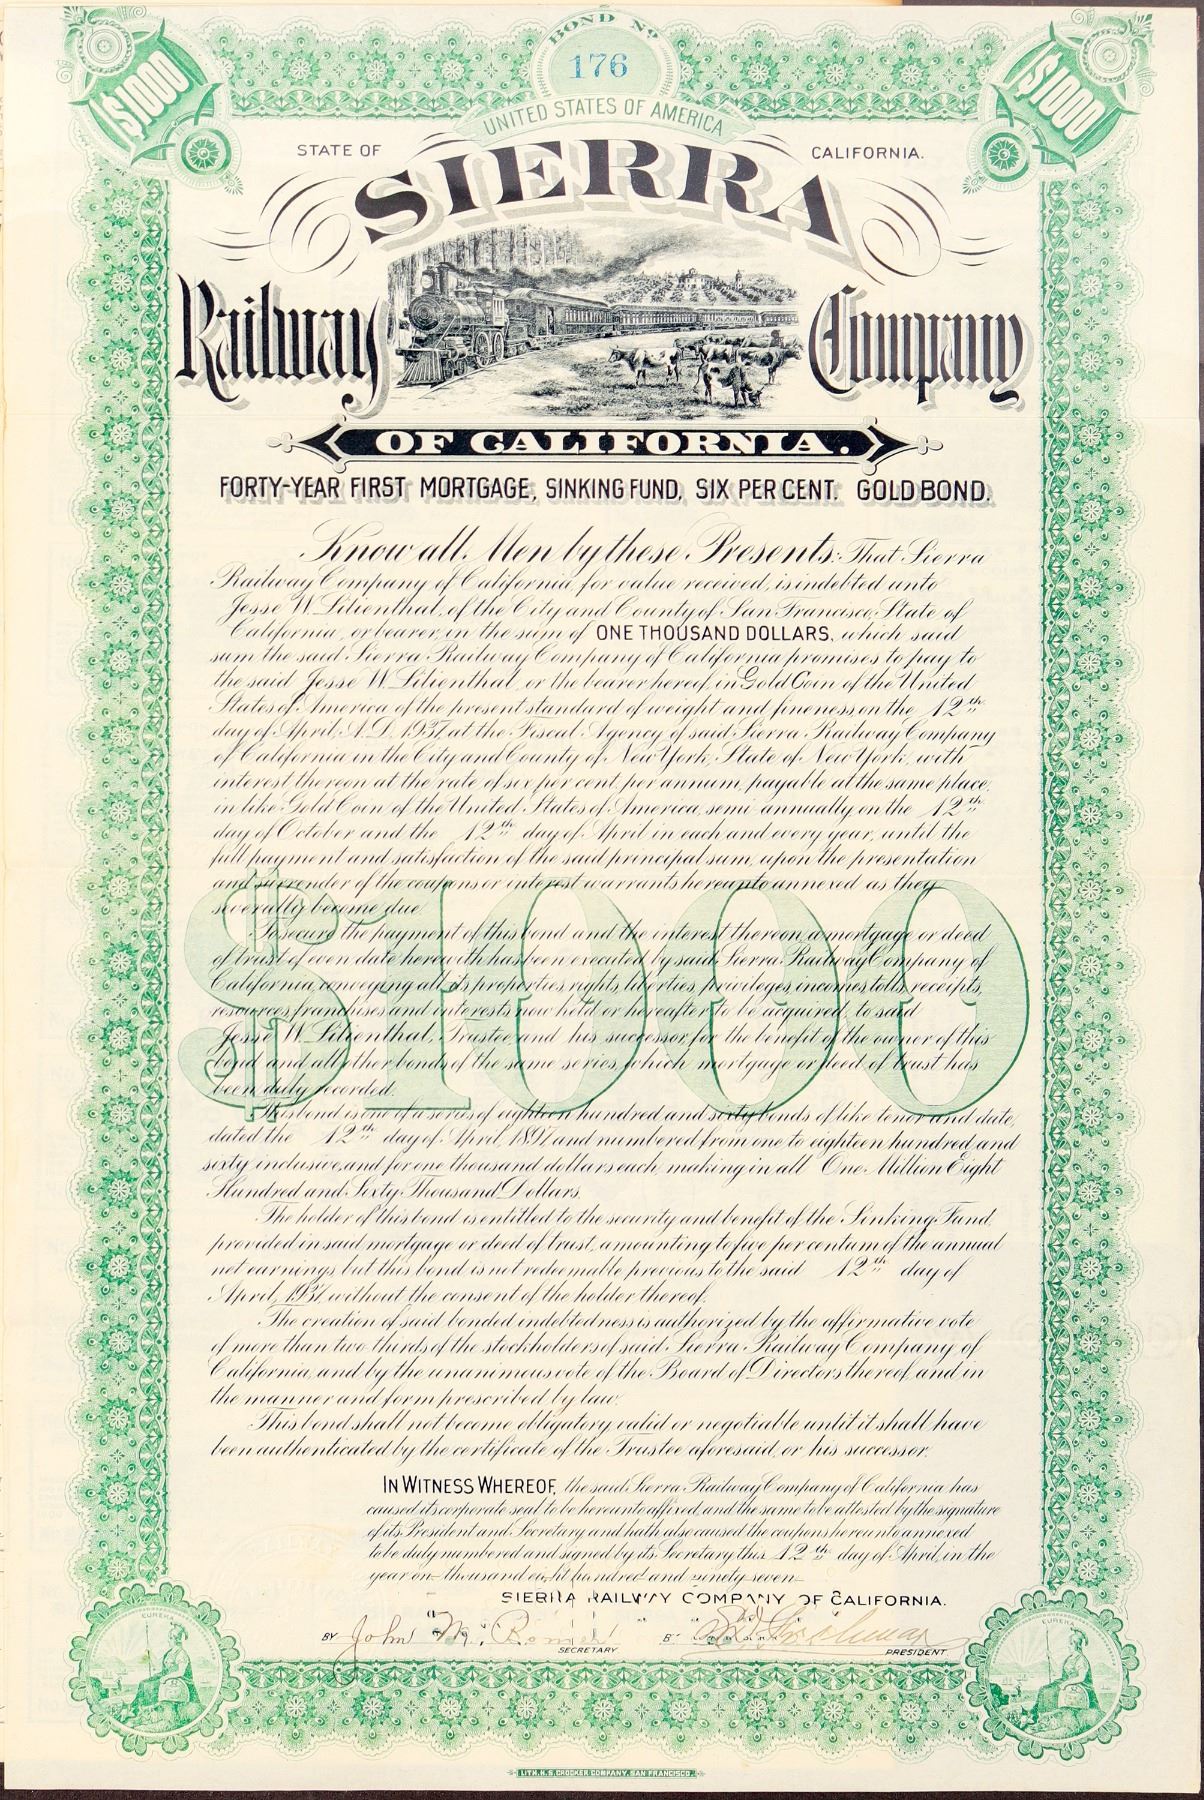 BOND No
176
UNITED STATES OF AMERICA
$1000
$1000
STATE OF CALIFORNIA.
SIERRA
Railway Company
OF CALIFORNIA.
FORTY-YEAR FIRST MORTGAGE, SINKING FUND, SIX PER CENT. GOLD BOND.
Know all Men by these Presents: That Sierra
Railway Company of California, for value received, is indebted unto
Jesse W. Lilienthal, of the City and County of San Francisco, State of
California, or bearer, in the sum of ONE THOUSAND DOLLARS, which said
sum the said Sierra Railway Company of California promises to pay to
the said Jesse W. Lilienthal, or the bearer hereof, in Gold Coin of the United
States of America of the present standard of weight and fineness on the 12th
day of April, A.D. 1937, at the Fiscal Agency of said Sierra Railway Company
of California in the City and County of New York, State of New York, with
interest thereon at the rate of six per cent. per annum, payable at the same place,
in like Gold Coin of the United States of America, semi-annually on the 12th
day of October and the 12th day of April in each and every year, until the
full payment and satisfaction of the said principal sum, upon the presentation
and surrender of the coupons or interest warrants hereunto annexed as they
severally become due.
$1000
To secure the payment of this bond and the interest thereon, a mortgage or deed
of trust of even date herewith has been executed by said Sierra Railway Company of
California, conveying all its properties, rights, liberties, privileges, incomes, tolls, receipts,
resources, franchises and interests now held or hereafter to be acquired, to said
Jesse W. Lilienthal, Trustee, and his successor, for the benefit of the owner of this
bond and all other bonds of the same series, which mortgage or deed of trust has
been duly recorded.
This bond is one of a series of eighteen hundred and sixty bonds of like tenor and date,
dated the 12th day of April, 1897, and numbered from one to eighteen hundred and
sixty, inclusive, and for one thousand dollars each, making in all One Million Eight
Hundred and Sixty Thousand Dollars.
The holder of this bond is entitled to the security and benefit of the Sinking Fund,
provided in said mortgage or deed of trust, amounting to five per centum of the annual
net earnings, but this bond is not redeemable previous to the said 12th day of
April, 1937, without the consent of the holder thereof.
The creation of said bonded indebtedness is authorized by the affirmative vote
of more than two thirds of the stockholders of said Sierra Railway Company of
California, and by the unanimous vote of the Board of Directors thereof, and in
the manner and form prescribed by law.
This bond shall not become obligatory, valid or negotiable until it shall have
been authenticated by the certificate of the Trustee aforesaid, or his successor.
IN WITNESS WHEREOF, the said Sierra Railway Company of California has
caused its corporate seal to be hereunto affixed, and the same to be attested by the signature
of its President and Secretary, and hath also caused the coupons hereunto annexed
to be duly numbered and signed by its Secretary this 12th day of April, in the
year one thousand eight hundred and ninety seven.
SIERRA RAILWAY COMPANY OF CALIFORNIA.
BY John M.
SECRETARY
PRESIDENT
EUREKA
EUREKA
LITH. H.S. CROCKER COMPANY, SAN FRANCISCO.